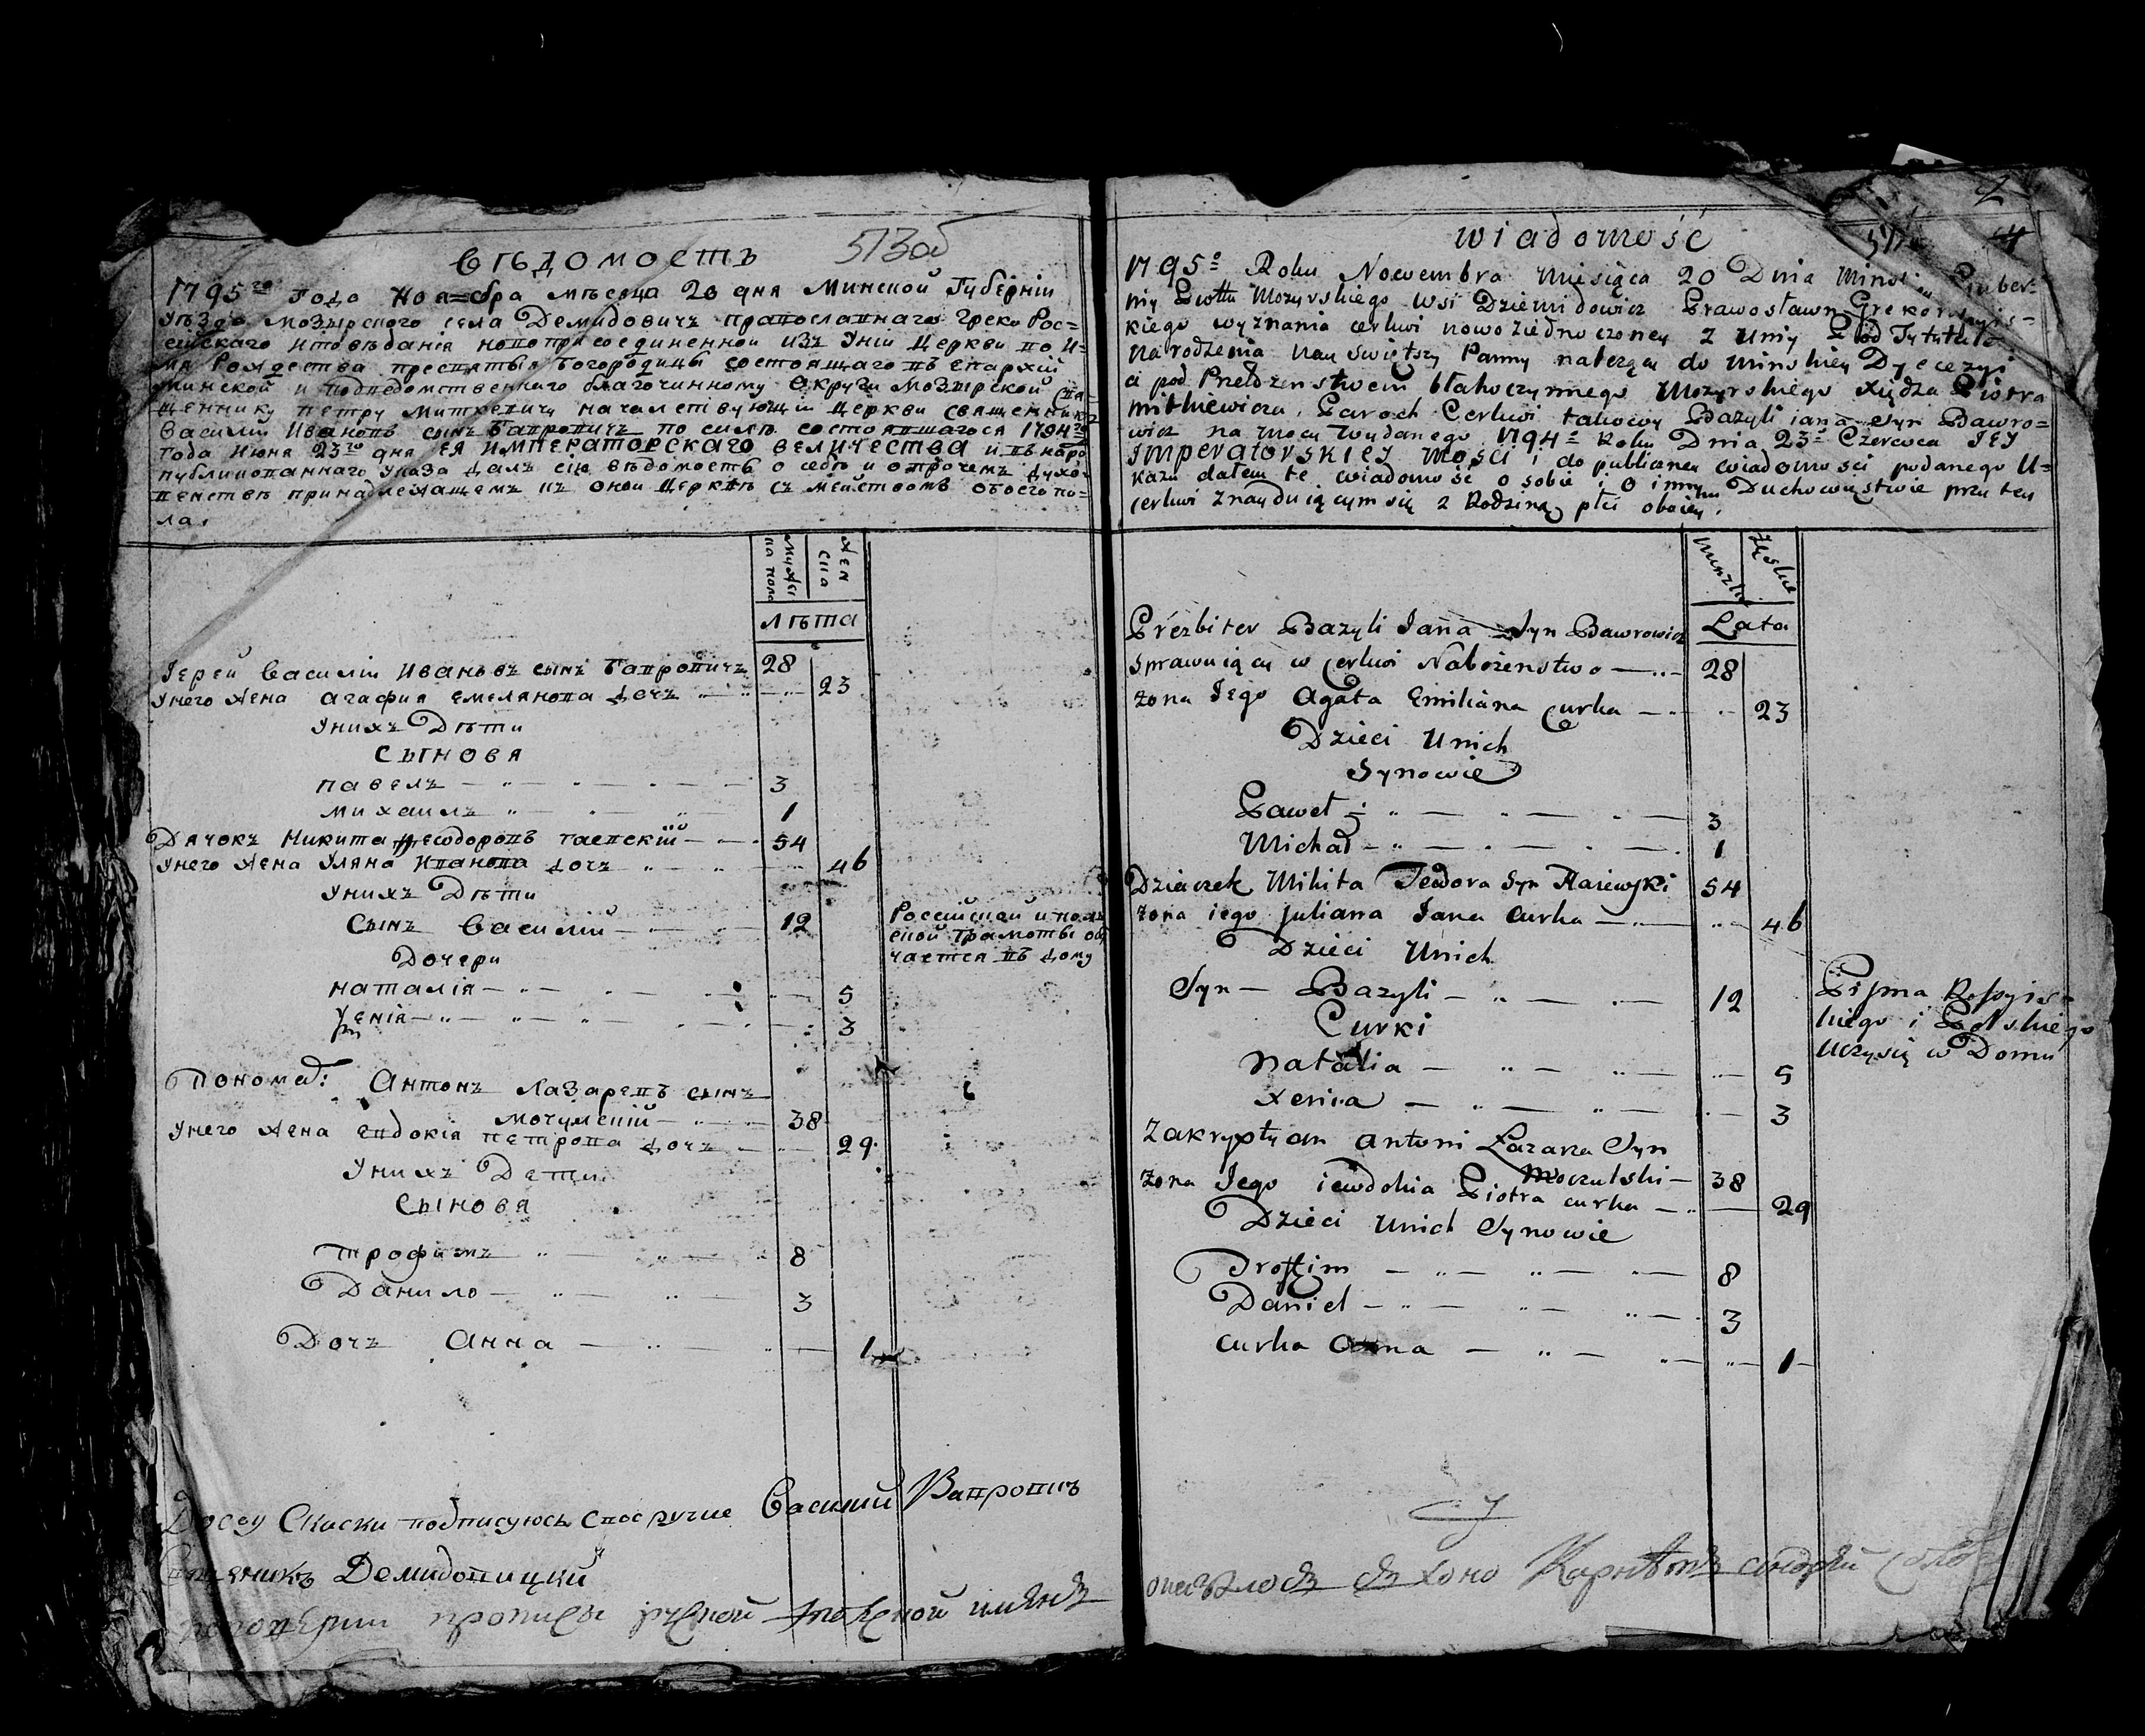 вѣдомость
573об
1795го Года Ноя=бра мѣсяца 20 дня Минской Губерніи
Уѣзда Мозырского села Демидовичъ православнаго Греко Рос=
сійскаго исповѣданія новоприсоединенной изъ Уніи Церкви во и=
мя Рождества пресвятыя Богородицы состоящаго въ Епархіи
Минской и подведомственнаго благочинному Округи Мозырской Свя=
щеннику Петру Миткевичу началствующій Церкви Священникъ
Василий Ивановъ сынъ Вавровичъ по силѣ состоявшагося 1794го
года Июня 23го дня ЕЯ ИМПЕРАТОРСКАГО ВЕЛИЧЕСТВА и въ наро
публикованнаго Указа далъ сию вѣдомость о себѣ и о прочемъ Духо
венствѣ принадлежащемъ къ оной Церквѣ съ мейством обоего по=
ла.
Мужеска пола
Женска
Лѣта
Іерей Василій Ивановъ сынъ Вавровичъ 28
Унего Жена Агафия Емелянова дочь 23
Унихъ Дѣти
СЫНОВЯ
павелъ 3
михаилъ 1
Дячокъ Никита Феодоровъ 54
Унего Жена Уляна Иванова дочь 46
Унихъ Дѣти
Сынъ Василій 12
Российской и пол
ской Грамоты об
чается въ дому
Дочери
наталія 5
Ксенія 3
Поном: Антонъ Лазаревъ сынъ
Мочулский 38
Унего Жена Евдокія петрова дочь 29
Унихъ Дети
СЫНОВЯ
трофимъ 8
Данило 3
Дочь Анна 1
Ксеи Скаски подписуюсь Василий Вавровичъ
Демидовицкий
wiadomość
2
4
1795o Roku Nowembra miesiąca 20 Dnia Minsk Guber=
nij Powiatu Mozyrskiego wsi Dziemidowicz Prawosławn Grekorossyis=
kiego wyznania cerkwi nowoziednoczoney z Unij Pod Tytułem
Narodzenia Nayswiętszy Panny należący do minskiey Dyecezyi
pod Prełdzenstwem błahoczynnego Mozyrskiego Xiędza Piotra
Mitkiewicza, Paroch Cerkwi takowey Bazyli Jana Syn Bawro=
wicz na mocy wydanego 1794o Roku Dnia 23o Czerwca JEY
IMPERATORSKIEJ MOSCI i do publiczney wiadomosci podanego U=
kazu dałem te wiadomość o sobie i o innym Duchowienstwie przy tey
cerkwi znayduiącym się z Rodziną płci oboiey.
Munzka
Zęska
Lata
Prezbiter Bazyli Jana Syn Bawrowicz
Sprawuiący w Cerkwi Nabożenstwo 28
żona Jego Agata Emiliana Curka 23
Dzieci Unich
Synowie
Paweł 3
Michał 1
Dziaczek Mikita Teodora Syn 54
żona iego Juliana Jana Curka 46
Dzieci Unich
Syn Bazyli 12
Pisma Rossyis=
kiego i Polskiego
Uczy się w Domu
Curki
Natalia 5
Xenia 3
Zakrystyan Antoni Łazarza Syn
Moczulski 38
żona Jego iewdokia Piotra curka 29
Dzieci Unich Synowie
Trofim 8
Daniel 3
curka Anna 1